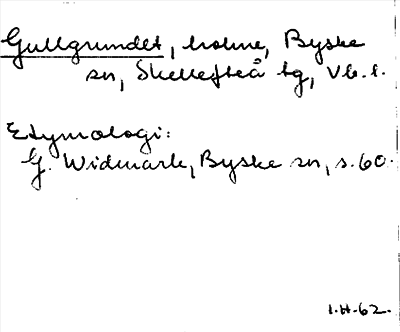 Gullgrundet, holme, Byske
sn, Skellefteå tg, Vb. l.
Etymologi:
G. Widmark, Byske sn, s. 60.
1.H.62.